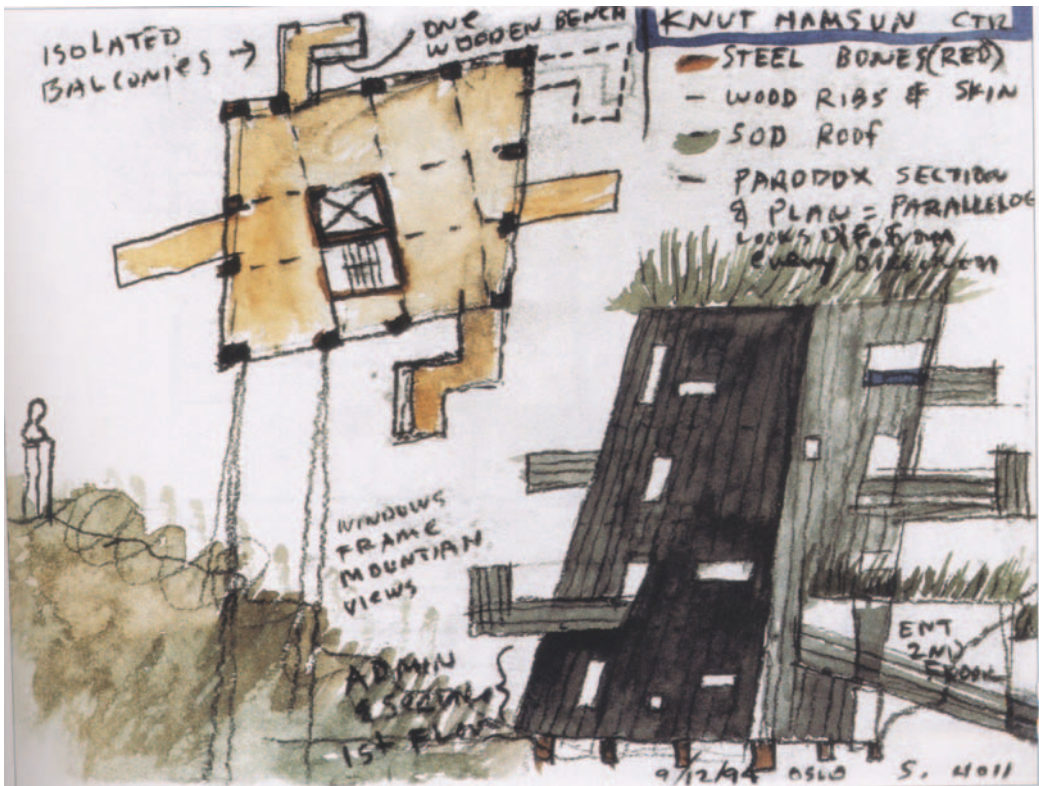 ISOLATED
BALCONIES →
ONE
WOODEN BENCH
KNUT HAMSUN CTR
STEEL BONES (RED)
— WOOD RIBS & SKIN
SOD ROOF
— PARODOX SECTION
& PLAN = PARALLELOG
LOOKS DIF. from
every DIRECTION
WINDOWS
FRAME
MOUNTIAN
VIEWS
ADMIN
1st FLOOR
ENT
2ND
FLOOR
9/12/94 OSLO S. HOLL